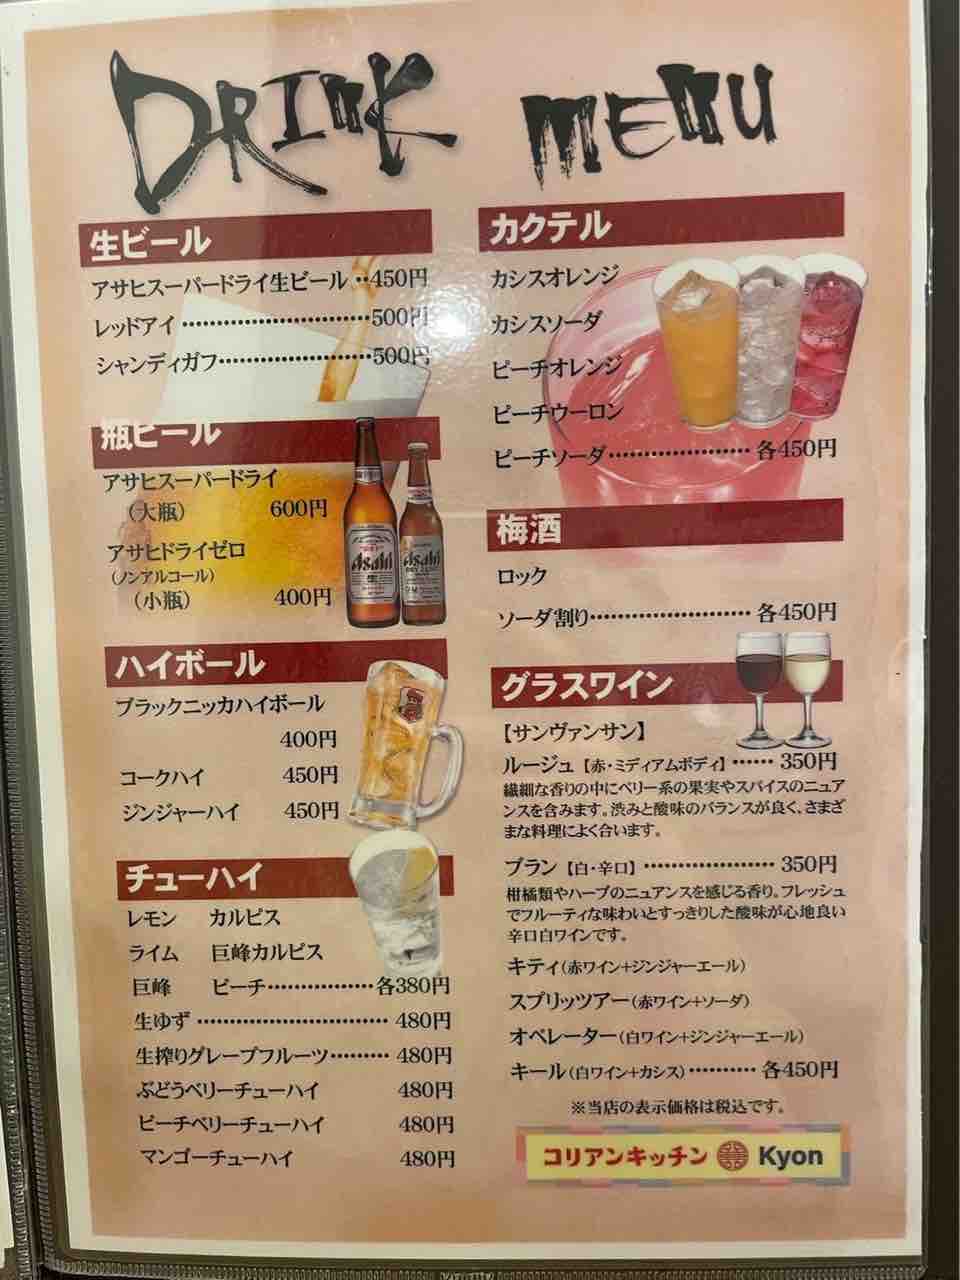 DRINK MENU
生ビール
アサヒスーパードライ生ビール‥450円
レッドアイ………………………500円
シャンディガフ…………………500円
瓶ビール
アサヒスーパードライ
（大瓶） 600円
アサヒドライゼロ
（ノンアルコール）
（小瓶） 400円
Asahi
Asahi
ハイボール
ブラックニッカハイボール
400円
コークハイ 450円
ジンジャーハイ 450円
チューハイ
レモン カルピス
ライム 巨峰カルピス
巨峰 ピーチ……………各380円
生ゆず………………………480円
生搾りグレープフルーツ………480円
ぶどうベリーチューハイ 480円
ピーチベリーチューハイ 480円
マンゴーチューハイ 480円
カクテル
カシスオレンジ
カシスソーダ
ピーチオレンジ
ピーチウーロン
ピーチソーダ…………………各450円
梅酒
ロック
ソーダ割り……………………各450円
グラスワイン
【サンヴァンサン】
ルージュ【赤・ミディアムボディ】……350円
繊細な香りの中にベリー系の果実やスパイスのニュア
ンスを含みます。渋みと酸味のバランスが良く、さまざ
まな料理によく合います。
ブラン【白・辛口】………………350円
柑橘類やハーブのニュアンスを感じる香り。フレッシュ
でフルーティな味わいとすっきりした酸味が心地良い
辛口白ワインです。
キティ（赤ワイン+ジンジャーエール）
スプリッツアー（赤ワイン+ソーダ）
オペレーター（白ワイン+ジンジャーエール）
キール（白ワイン+カシス）………各450円
※当店の表示価格は税込です。
コリアンキッチン Kyon